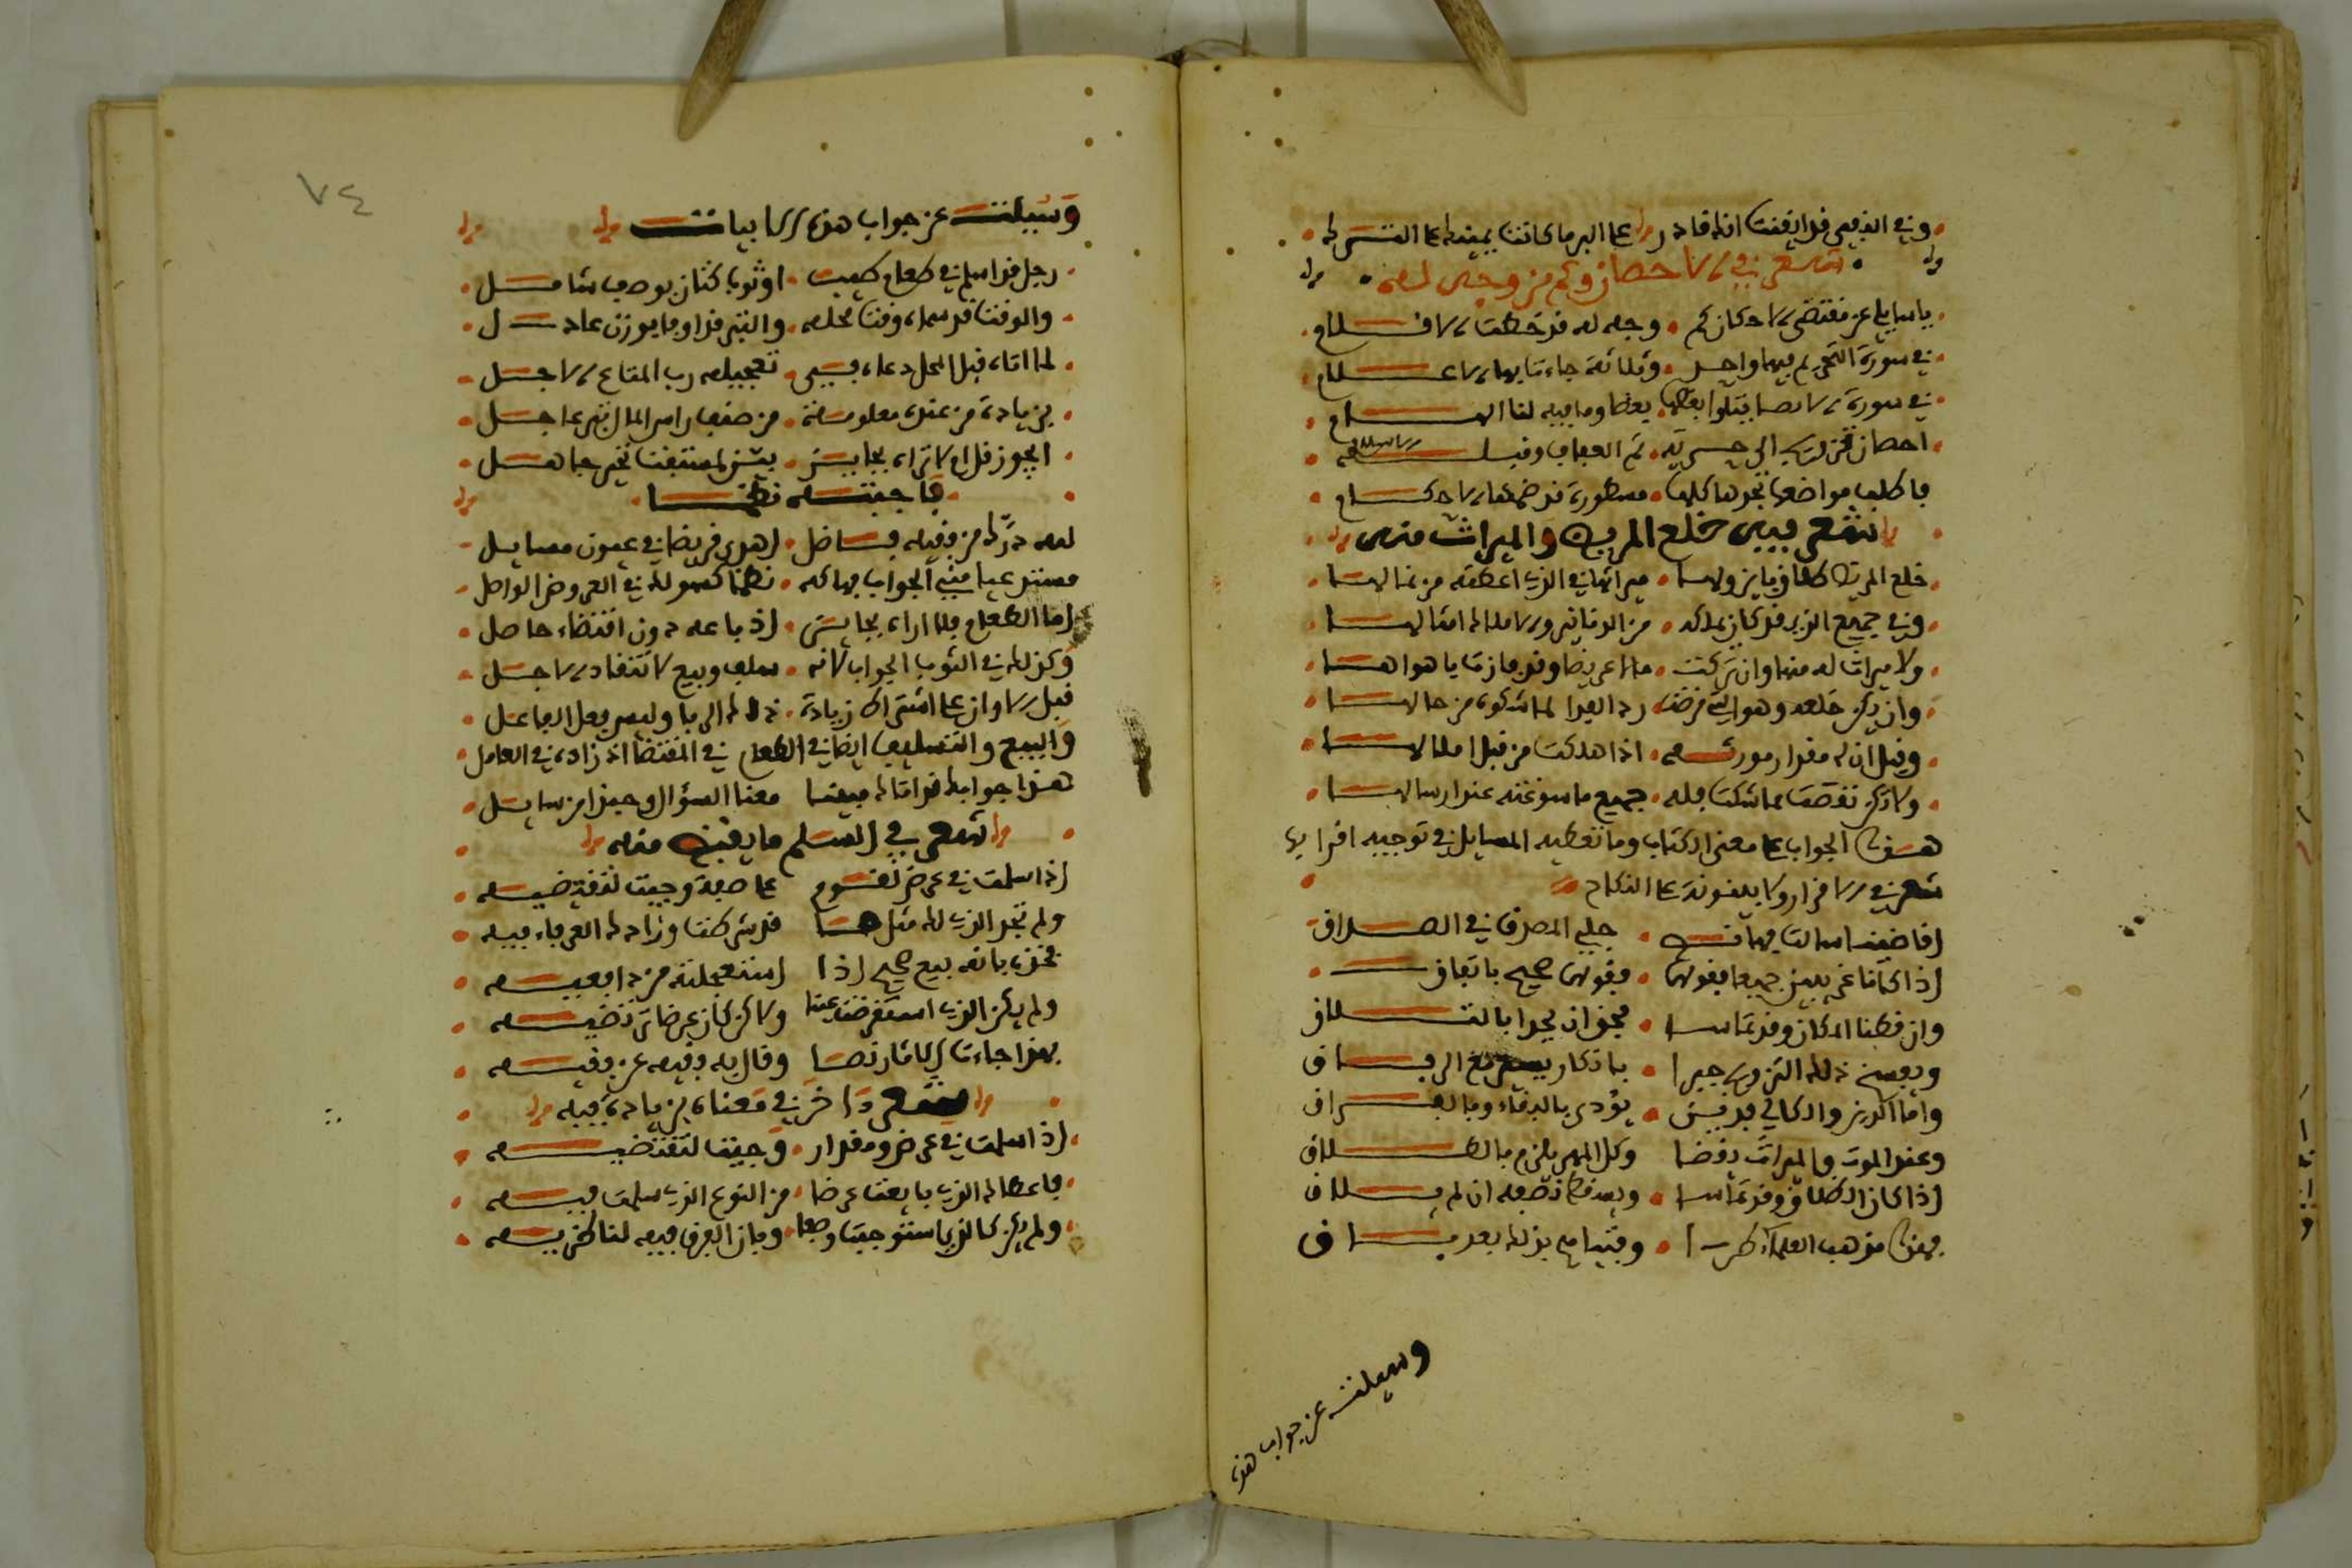 وفي الذي قد ايقنت انك قادر على البر ما كانت يمينك على الشرك
شعر في الاحصان وكم من وجه له
يا سايلي عن مقتضى الاحكام وجه له قد خطت الاقلام
في سورة التحريم فيها واحد وثلاثة جاءت بها الاعلام
في سورة النسا يتلوا بعضها بعضا وما فيه لنا الهام
احصان تزويج الى حرية ثم العفاف وقيل الاسلام
فاطلب مواضعها تجدها كلها مسطورة قد ضمها الاحكام
شعر فيمن خالع المريض والميراث منه
خلع المريض طلاق بايز ولها ميراثها في الذي اعطته من مالها
وفي جميع الذي قد كان يملكه من الدنانير والاملاك امثالها
ولا ميراث له منها وان تركت مالا عريضا وقد فازت يا هواها
وان يكن خلعه وهي التي مرضت رد الفدا لما شكوه من حالها
وقيل ان له مقدار مورثه اذا هلكت من قبل املالها
ولا تكن نقصت مما شكت فله جميع ما سوغته عند ارسالها
هذا الجواب على معنى الكتاب وما تعطيه المسايل في توجيه اقرابها
شعر في الاقرار ولا يلفونه على النكاح
اقاضينا سالت فهات جلي المصرف في الصداق
اذا كانا غريبين جميعا فقولهما صحيح باتفاق
وان قطنا المكان وقد تماسا فمجز ان يحدا بالتلاق
ويفسخ ذلك التزويج جبرا باذكار يسرع الى فراق
واما اكبر والكالي فدين يؤدى بالبقاء وبالفراق
وعند الموت والميراث يقضا وكل المهر يلزم بالطلاق
اذا كان الطلاق وقد تماسا وبعد قطا نصفه ان لم يلاق
فهذا مذهب العلماء طرا وفتياهم بذلك بعد باق
وسيلت عن جواب هذه
٧٤
وسيلت عن جواب هذه الابيات
رجل قد اسلم في طعام طيب او ثوب كتان بوصف شامل
والوقت قد سماه وقت محله والنقد قداوفا بوزن عادل
لما اتاه قبل المحل دعاه في تعجيله رب المتاع الاجل
بزيادة من عنده معلومة من صنف راس المال نقد عاجل
ايجوز قل ام لا تراه بجايز بين لمستفت تحير جاهل
فاجبته نظما
لله درك من فقيه فاضل اهدى قريضا في عيون مسايل
مستدعيا مني الجواب فهاكه نظما كسولك في العروض الواصل
اما الطعام فلا اراه بجايز اذ باعه دون اقتضاء حاصل
وكذلك في الثوب الجواب لانه سلف وبيع لانتقاد الاجل
قبل الاوان على اشتراط زيادة ذاك الربا ولبيس فعل الفاعل
والبيع والتسليف ايضا في الطعام في المقتضا اذ زاده في العامل
هذا جوابك قد اتاك مبينا معنا السؤال وحبذا من سايل
شعر في السلم ما يقبض منه
اذا اسلمت في عرض لقوم على صفة وجيت لتقتضيه
ولم تجد الذي لك مثل هذا قد شرطت وزادك الغرماء فيه
فخذه بانه بيع صحيح اذا استعجلته من دافعيه
ولم يكن الذي استقرضت عينا ولكن كان عرضا ترتضيه
بهذا جاءت الاثار نصا وقال به فقيه عن فقيه
شعر داخر في معناه بزيادة فيه
اذا اسلمت في عرض ومقدار وجيت لتقتضيه
فاعطاك الذي بايعت عرضا من النوع الذي سلمت فيه
ولم يكن كالذي استوجبت وصفا وبان الفرق فيه لناظريه